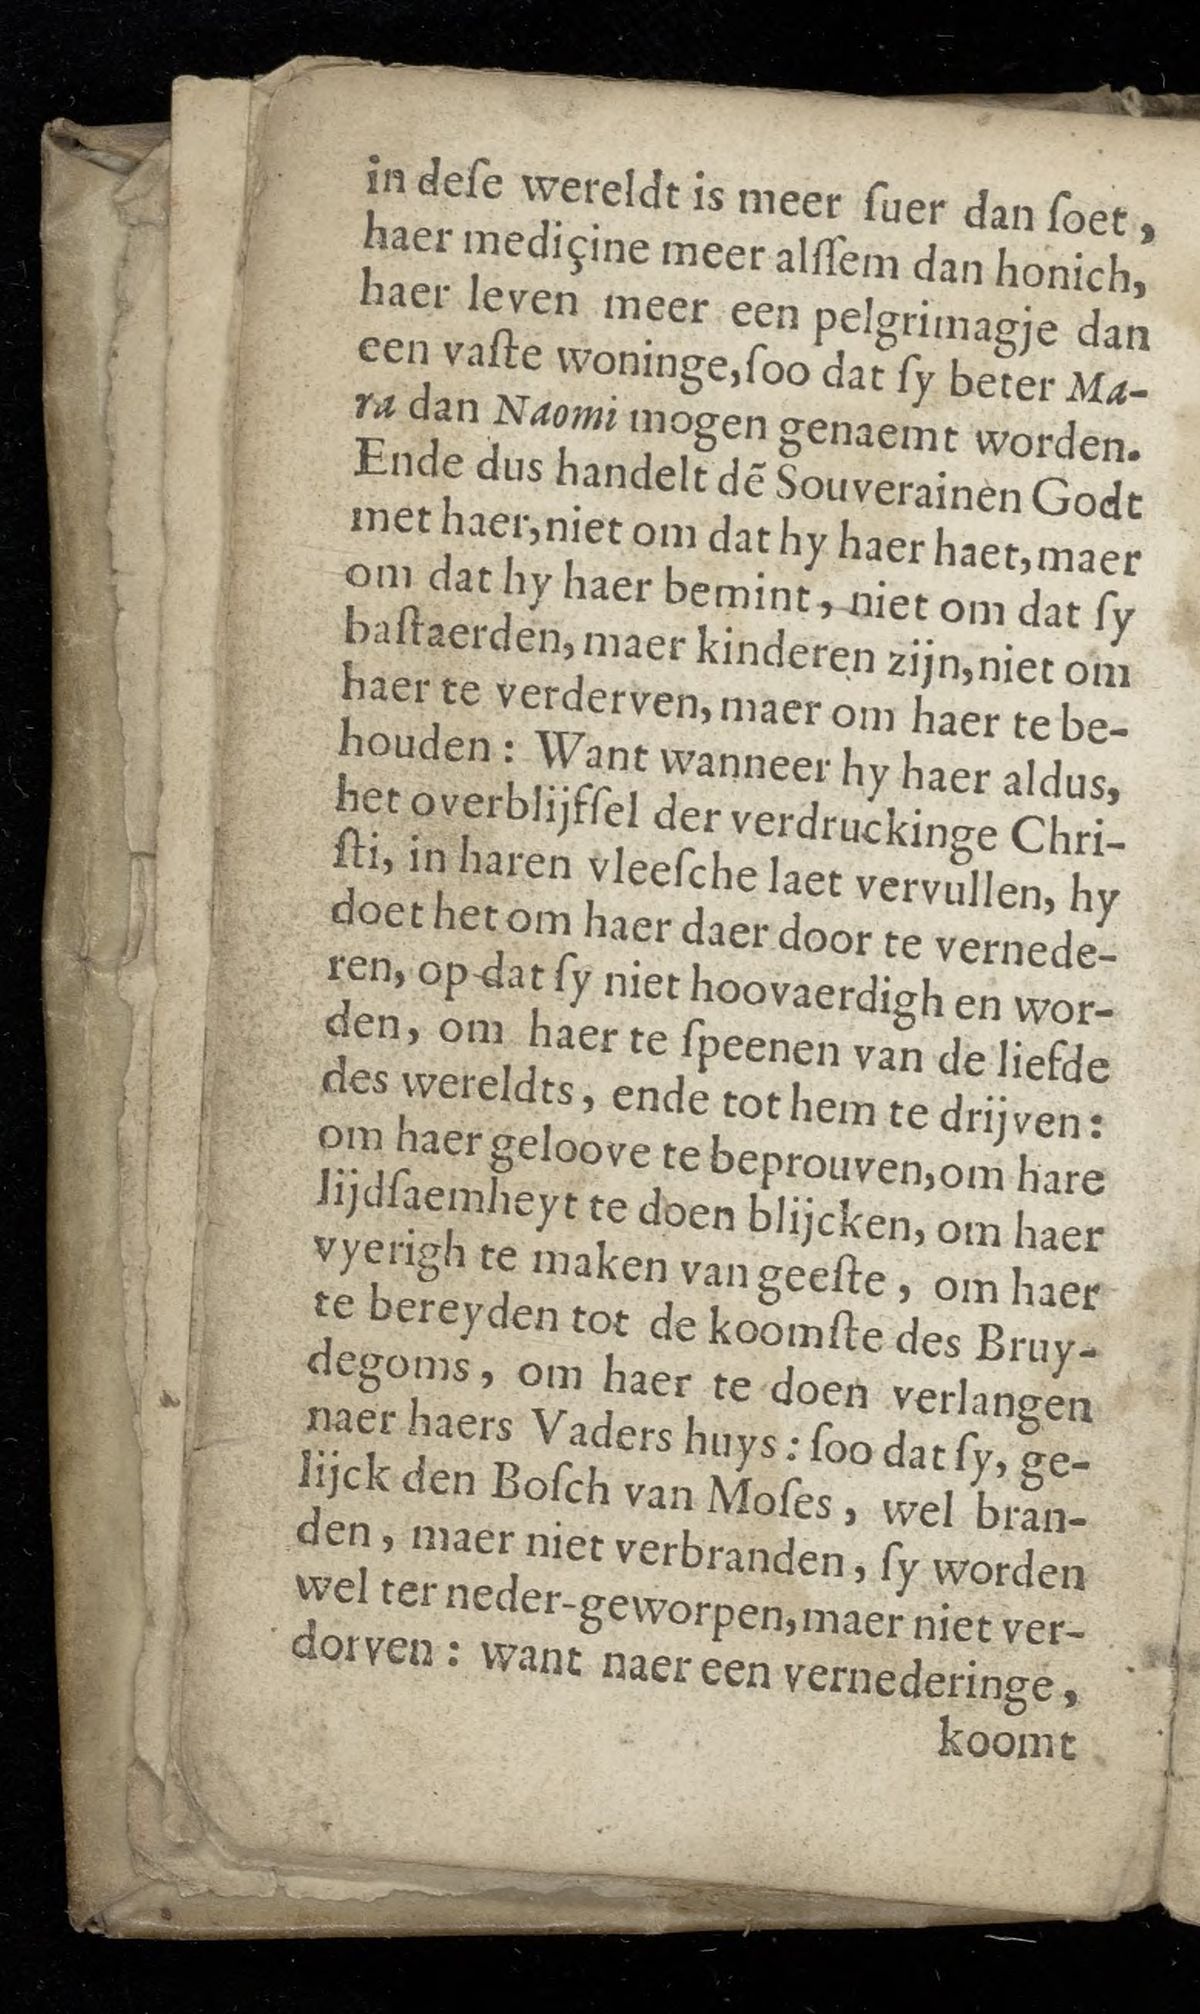 in deſe wereldt is meer ſuer dan ſoet,
haer mediçine meer alſſem dan honich,
haer leven meer een pelgrimagje dan
een vaſte woninge, ſoo dat ſy beter Ma-
ra dan Naomi mogen genaemt worden.
Ende dus handelt dẽ Souverainen Godt
met haer, niet om dat hy haer haet, maer
om dat hy haer bemint, niet om dat ſy
baſtaerden, maer kinderen zijn, niet om
haer te verderven, maer om haer te be-
houden: Want wanneer hy haer aldus,
het overblijfſel der verdruckinge Chri-
ſti, in haren vleeſche laet vervullen, hy
doet het om haer daer door te vernede-
ren, op-dat ſy niet hoovaerdigh en wor-
den, om haer te ſpeenen van de liefde
des wereldts, ende tot hem te drijven:
om haer geloove te beprouven, om hare
lijdſaemheyt te doen blijcken, om haer
vyerigh te maken van geeſte, om haer
te bereyden tot de koomſte des Bruy-
degoms, om haer te doen verlangen
naer haers Vaders huys: ſoo dat ſy, ge-
lijck den Boſch van Moſes, wel bran-
den, maer niet verbranden, ſy worden
wel ter neder-geworpen, maer niet ver-
dorven: want naer een vernederinge,
koomt